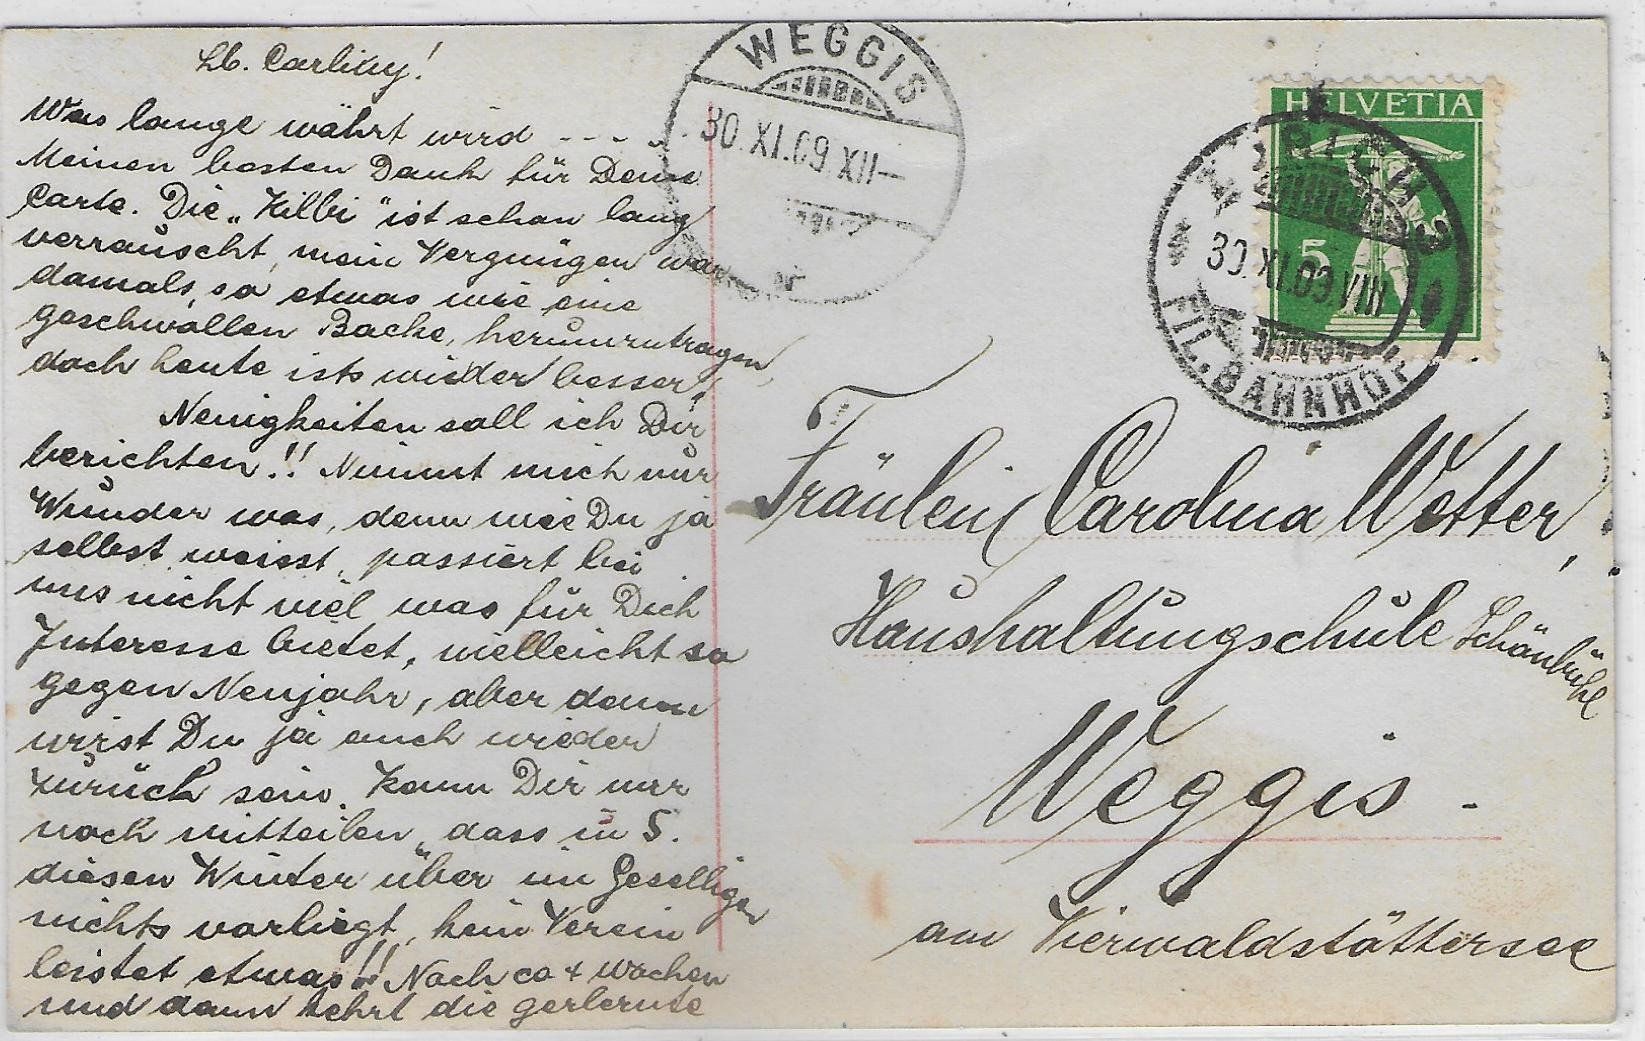 Lb. Carliny!
Was lange währt wird - - - . .
Meinen besten Dank für Deine
Carte. Die „Kilbi" ist schon lang
verrauscht, mein Vergnügen war
damals, so etwas wie eine
geschwollen Backe, herumzutragen,
doch heute ists wieder besser.
Neuigkeiten soll ich Dir
berichten!! Nimmt mich nur
Wunder was, denn wie Du ja
selbst weisst, passiert bei
uns nicht viel was für Dich
Interesse bietet, vielleicht so
gegen Neujahr, aber dann
wirst Du ja auch wieder
zurück sein. Kann Dir nur
noch mitteilen, dass in S.
diesen Winter über im Geselligen
nichts vorliegt, kein Verein
leistet etwas!! Noch ca 4 Wochen
und dann kehrt die gerlernte
WEGGIS
30.XI.09.XII—
HELVETIA
5
ZÜRICH 3
30.XI.09.VIII
FIL. BAHNHOF
Fräulein Carolina Wetter,
Haushaltungschule Schönbühl
Weggis -
am Vierwaldstättersee